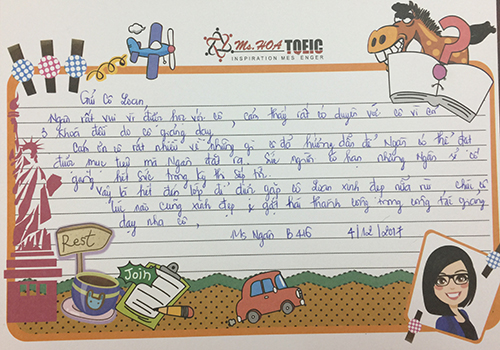 Ms.HOA TOEIC
INSPIRATION MESSENGER
Gửi Cô Loan,
Ngân rất vui vì được học với cô, cảm thấy rất có duyên với cô vì cả
3 khoá đều do cô giảng dạy
Cảm ơn cô rất nhiều về những gì cô đã hướng dẫn để Ngân có thể đạt
được mục tiêu mà Ngân đặt ra. Sức người có hạn nhưng Ngân sẽ cố
gắng hết sức trong kỳ thi sắp tới.
Vậy là hết đến lớp để được gặp cô Loan xinh đẹp nữa rùi, chúc cô
lúc nào cũng xinh đẹp & gặt hái thành công trong công tác giảng
dạy nha cô,
Ms Ngân B 446 4/12/2017
Rest
Join